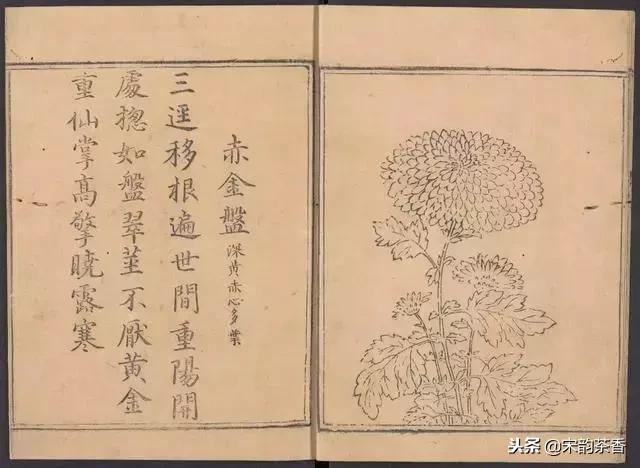 赤金盤 深黄赤心多葉
三逕移根遍世間重陽開
處揔如盤翠莖不厭黄金
重仙掌高擎曉露寒
头条 @宋韵茶香